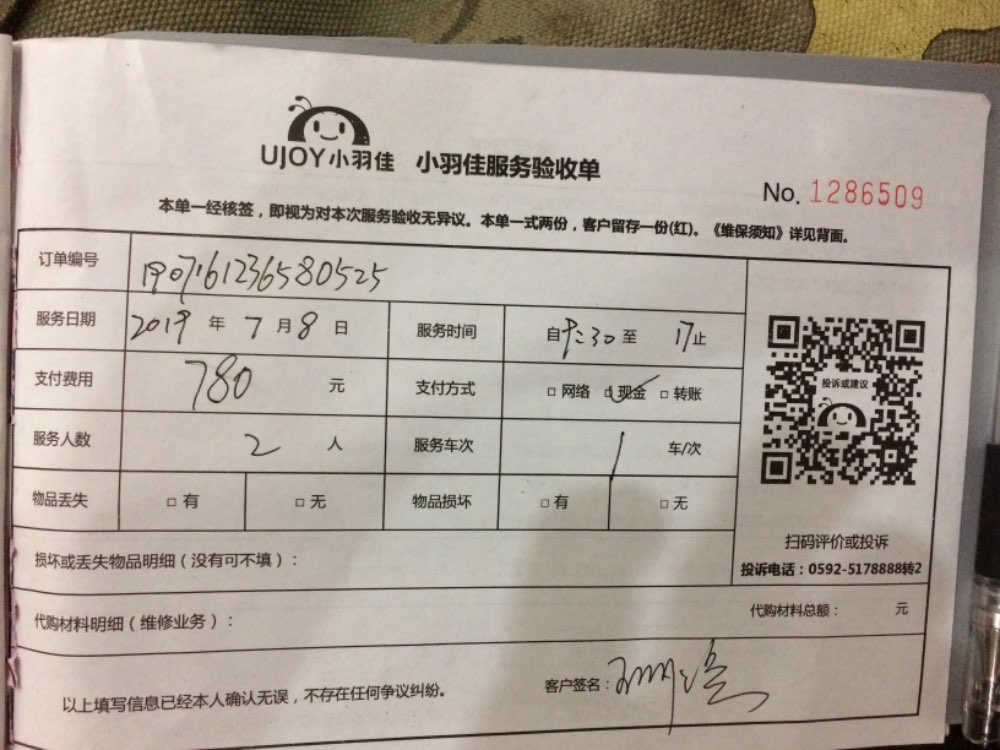 UJOY小羽佳 小羽佳服务验收单
No. 1286509
本单一经核签，即视为对本次服务验收无异议。本单一式两份，客户留存一份(红)。《维保须知》详见背面。
订单编号 1907161236580525
服务日期 2019 年 7 月 8 日 服务时间 自 9:30 至 17 止
支付费用 780 元 支付方式 □ 网络 □ 现金 □ 转账
服务人数 2 人 服务车次 1 车/次
物品丢失 □ 有 □ 无 物品损坏 □ 有 □ 无
投诉或建议
扫码评价或投诉
投诉电话：0592-5178888转2
损坏或丢失物品明细（没有可不填）：
代购材料明细（维修业务）： 代购材料总额： 元
以上填写信息已经本人确认无误，不存在任何争议纠纷。 客户签名：